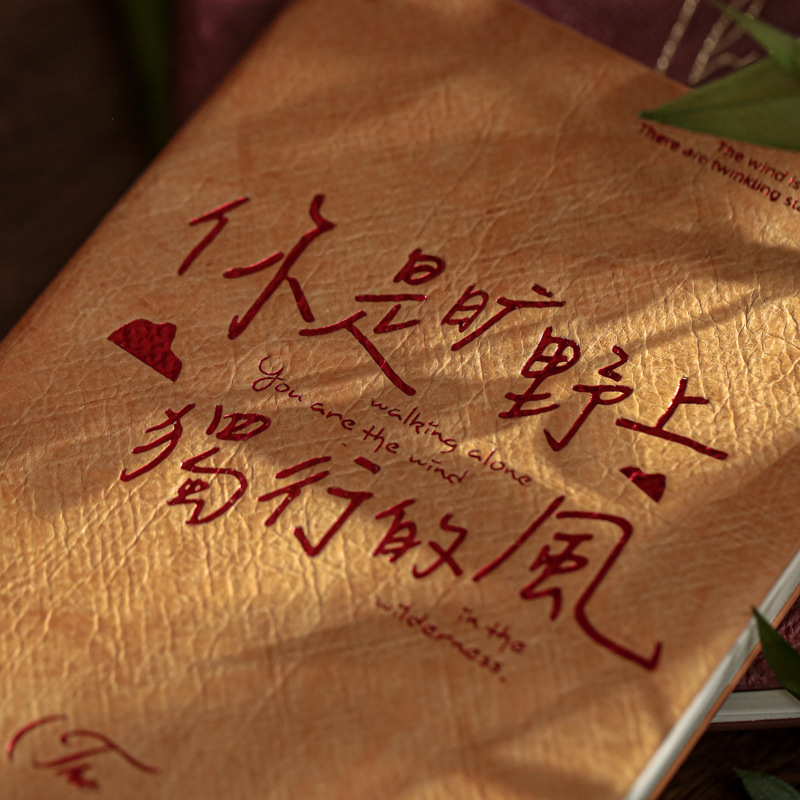 The wind is
There are twinkling
你是旷野上
You are the wind
walking alone
獨行的風
in the
wilderness.
(The